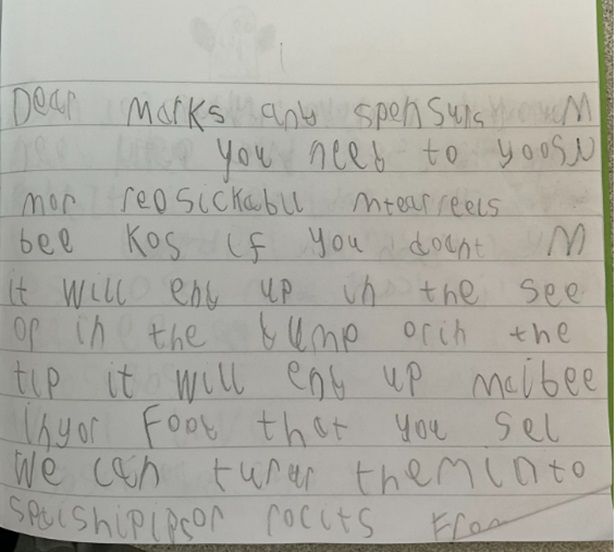 Dear Marks any spensurs M
you need to yoosN
mor reosickabll mtearreels
bee Kos if you doant M
it will enb up in the see
or in the bump orin the
tip it will enb up maibee
inyor Foob that you sel
We can turar them into
spaishipipsor rocits From